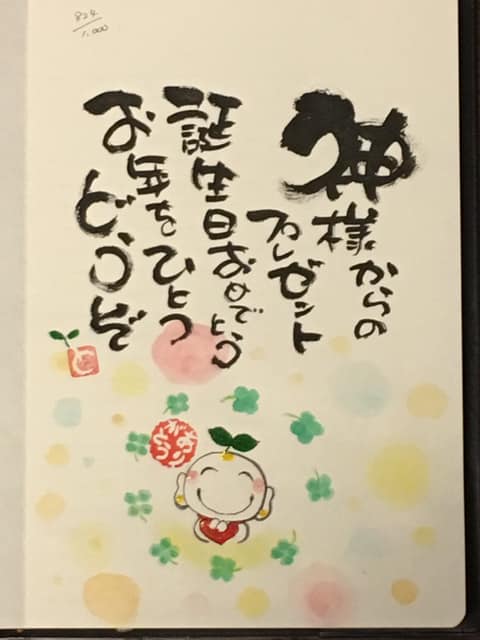 824
1,000
神様からの
プレゼント
誕生日おめでとう
お年をひとつ
どうぞ
ありがとう